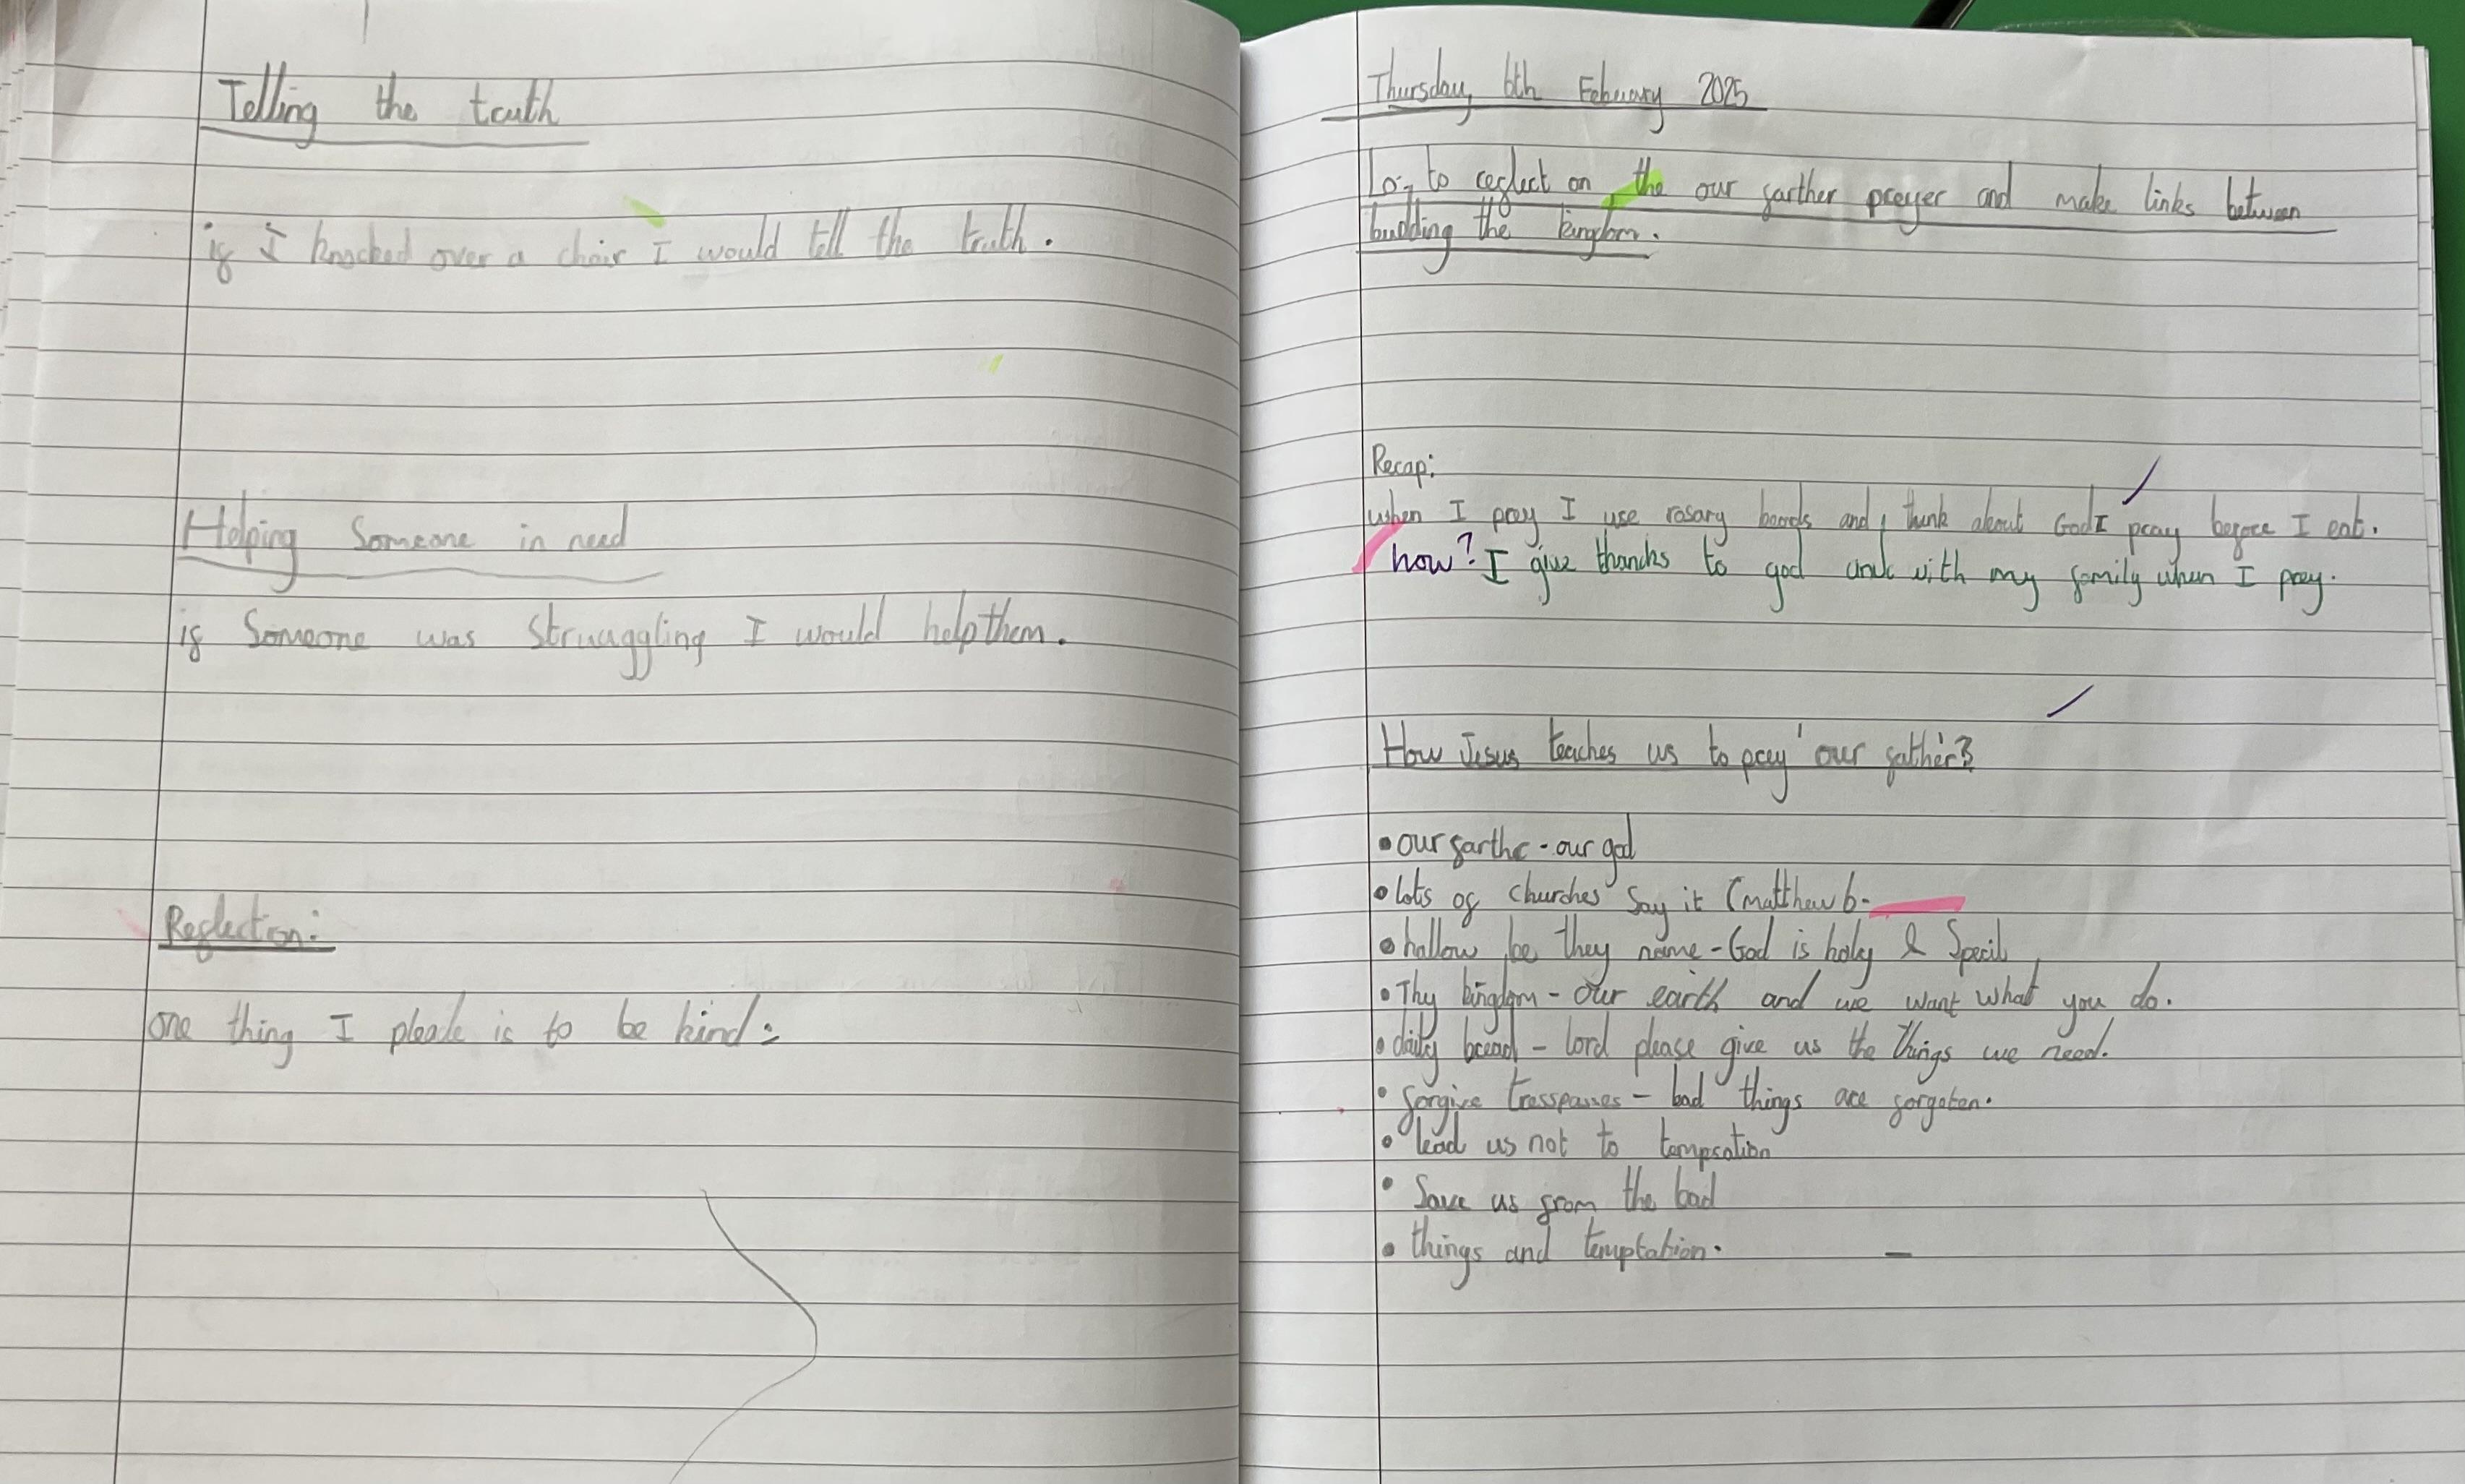 Telling the truth
if I knocked over a chair I would tell the truth.
Helping Someone in need
if Someone was Struuggling I would help them.
Reflection:
one thing I pleale is to be kind:
Thursday, 6th Febuary 2025
Lo- to reflect on the our farther preyer and make links between
building the kingdom.
Recap:
when I pray I use rosary beards and, think about God I pray before I eat.
how? I give thancks to god and with my family when I pray.
How Jesus teaches us to pray 'our father'?
• our farthe - our god
• lots of churches Say it (matthew 6-
• hallow be they name - God is holy & Specil
• Thy kingdom - our earth and we want what you do.
• daily bread - lord please give us the things we need.
• forgive tresspasses - bad things are forgoten.
• lead us not to tempsation
• Save us from the bad
• things and temptation.